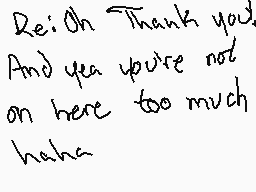 Re: Oh Thank you!
And yea you're not
on here too much
haha